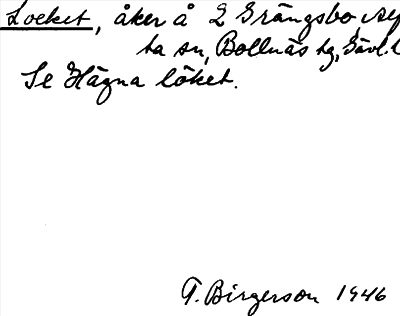 Locket, åker å 2 Grängsbo, Alf
ta sn, Bollnäs tg, Gävl. l
Se Hägna löket.
T. Birgerson 1946